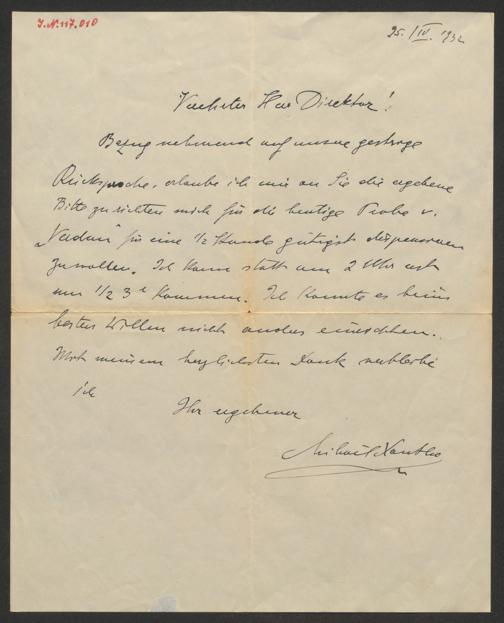 J.N. 117.010
25./IV. 1932
Verehrter Herr Direktor!
Bezug nehmend auf unsere gestrige
Rücksprache, erlaube ich mir an Sie die ergebene
Bitte zu richten mich für die heutige Probe v.
für eine 1/2 Stunde gütigst dispensieren
zu wollen. Ich kann statt um 2 Uhr erst
um 1/2 3 kommen. Ich konnte es beim
besten Willen nicht anders einrichten.
Mit meinem herzlichsten Dank verbleibe
ich
Ihr ergebener
Mihail Xantho